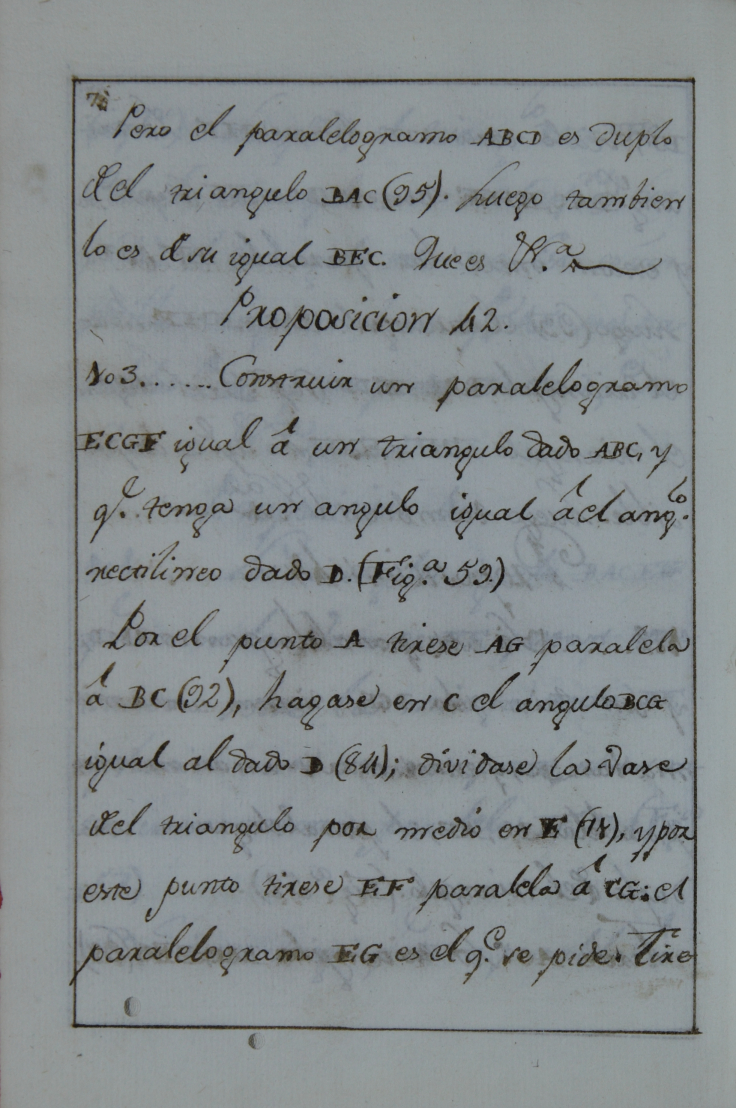 Pero el paralelogramo ABCD es duplo
del triangulo BAC (95). Luego tambien
lo es de su igual BEC. Que es &.ª
Proposicion 42.
103......Construir un paralelogramo
ECGF igual á un triangulo dado ABC, y
q.e tenga un angulo igual ál ang.lo
rectilineo dado D. (Fig.ª 59)
Por el punto A tirese AG paralela
á BC (92), hagase en C el angulo BCG
igual al dado D (84); dividase la vase
del triangulo por medio en E (74), y por
este punto tirese EF paralela á CG: el
paralelogramo EG es el q.e se pide. Tire